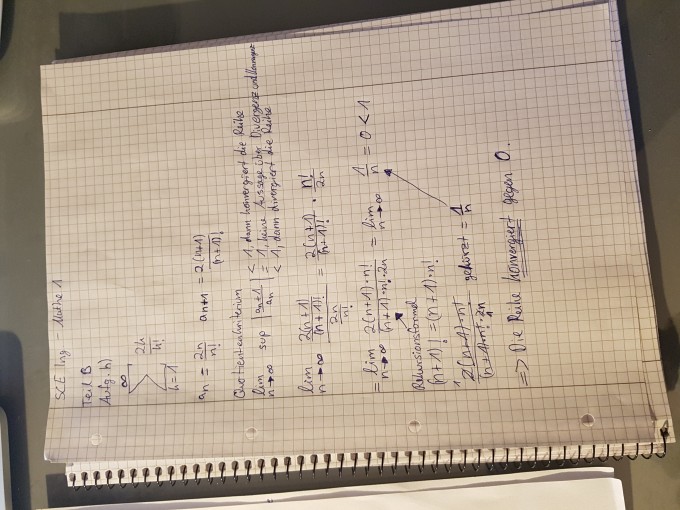 SCE Ing - Mathe 1
Teil B
Aufg. h)
∞ ∑ k=1 2k/k!
an = 2n/n! an+1 = 2(n+1)/(n+1)!
Quotientenkriterium
lim n→∞ sup |an+1/an| < 1, dann konvergiert die Reihe
= 1, keine Aussage über Divergenz und Konvergenz
< 1, dann divergiert die Reihe
lim n→∞ (2(n+1)/(n+1)!)/(2n/n!) = 2(n+1)/(n+1)! · n!/2n
= lim n→∞ 2(n+1)·n!/(n+1)·n!·2n = lim n→∞ 1/n = 0 < 1
Rekursionsformel
(n+1)! = (n+1)·n!
2(n+1)·n!/(n+1)·n!·2n gekürzt = 1/n
=> Die Reihe konvergiert gegen 0.